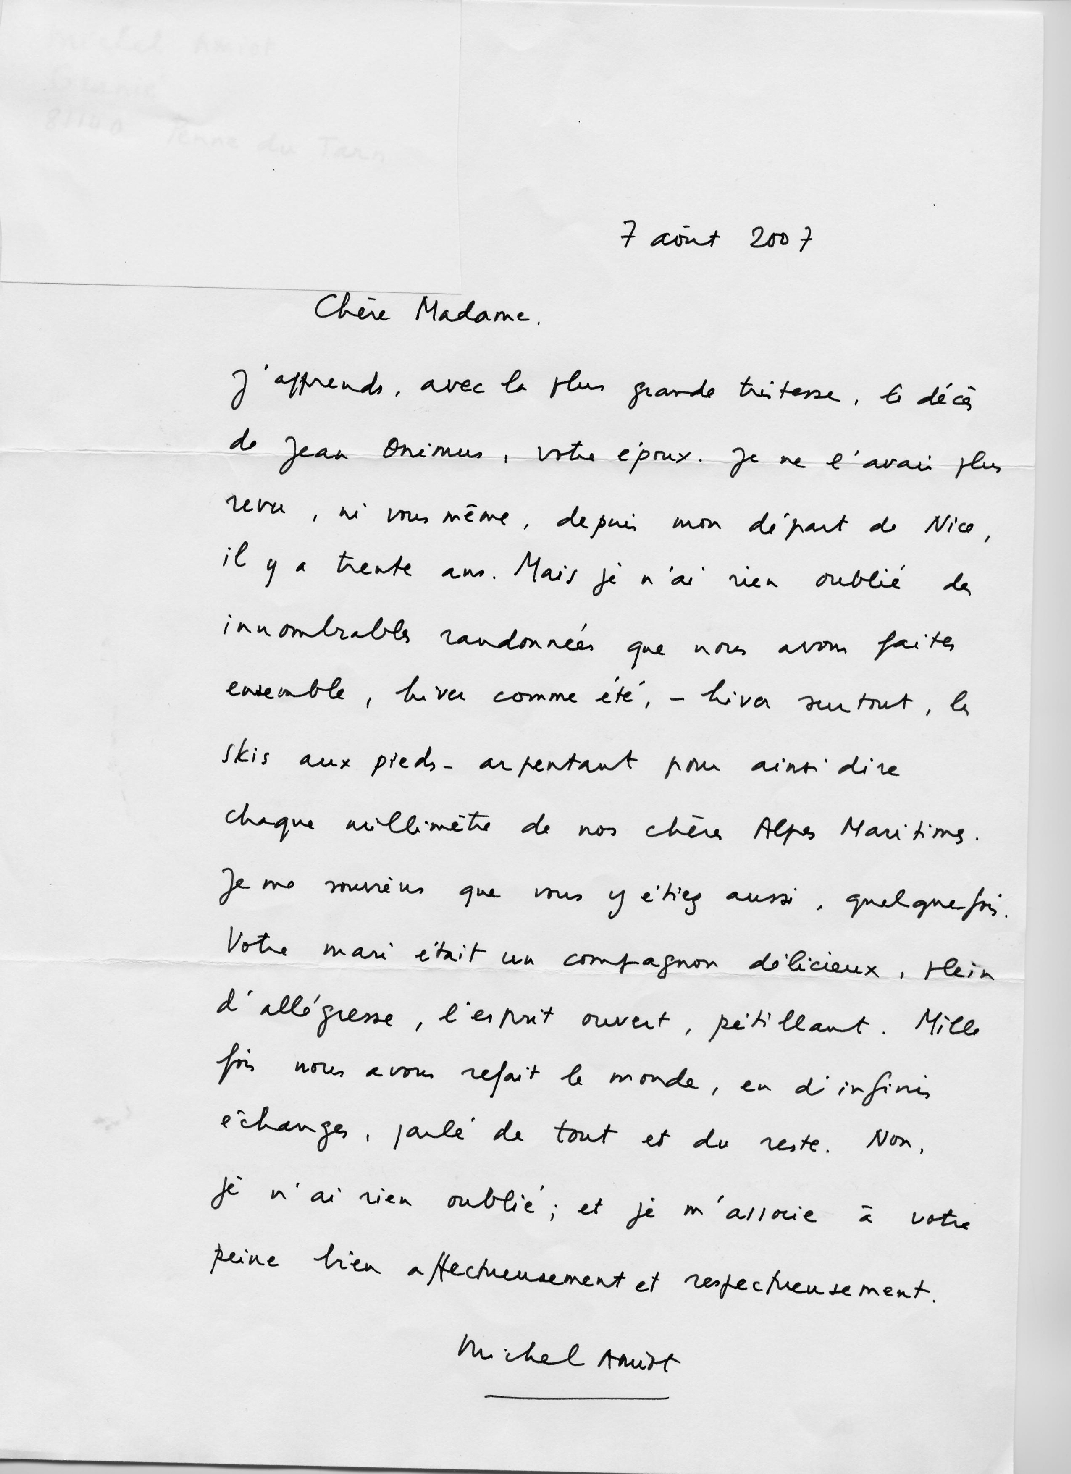 Michel Amiot
81140 Penne du Tarn
7 août 2007
Chère Madame.
J'apprends, avec la plus grande tristesse, le décès
de Jean Onimus, votre époux. Je ne l'avais plus
revu, ni vous même, depuis mon départ de Nice,
il y a trente ans. Mais je n'ai rien oublié des
innombrables randonnées que nous avons faites
ensemble, hiver comme été, - hiver surtout, les
skis aux pieds - arpentant pour ainsi dire
chaque millimètre de nos chères Alpes Maritimes.
Je me souviens que vous y étiez aussi, quelquefois.
Votre mari était un compagnon délicieux, plein
d'allégresse, l'esprit ouvert, pétillant. Mille
fois nous avons refait le monde, en d'infinis
échanges, parlé de tout et du reste. Non,
je n'ai rien oublié; et je m'associe à votre
peine bien affectueusement et respectueusement.
Michel Amiot